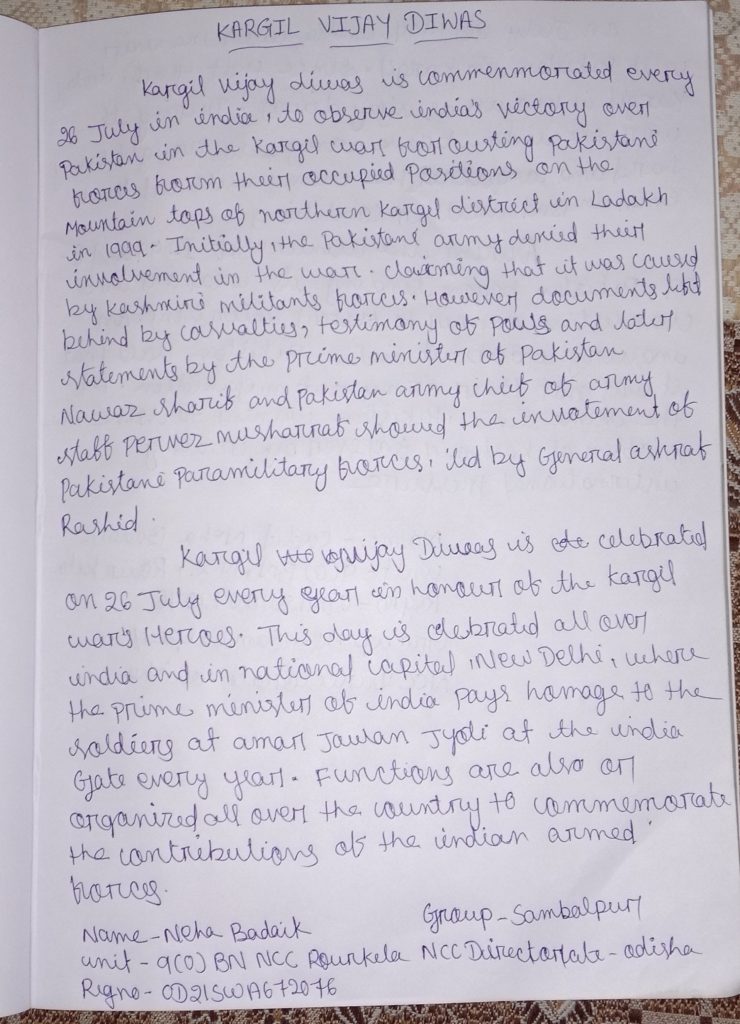 KARGIL VIJAY DIWAS
Kargil vijay diwas is commenmorated every
26 July in india, to observe india's victory over
Pakistan in the Kargil war for ousting Pakistani
forces from their occupied Positions on the
Mountain tops of northern Kargil district in Ladakh
in 1999. Initially, the Pakistani army denied their
involvement in the war. claiming that it was caused
by Kashmiri militants forces. However documents left
behind by casualties, testimony of POWs and later
statements by the Prime minister of Pakistan
Nawaz sharif and Pakistan army chief of army
staff Pervez musharraf showed the invotement of
Pakistani Paramilitary forces, led by General ashraf
Rashid.
Kargil vijay Diwas is celebrated
on 26 July every year in honour of the Kargil
war's Heroes. This day is clebrated all over
india and in national capital, New Delhi, where
the prime minister of india pays homage to the
soldiers at amar Jawan Jyoti at the india
Gate every year. Functions are also or
organized all over the country to commemorate
the contributions of the indian armed
forces.
Name - Neha Badaik Group - Sambalpur
unit - 9(O) BN NCC Rourkela NCC Directorate - odisha
Rigno - OD21SWA672076